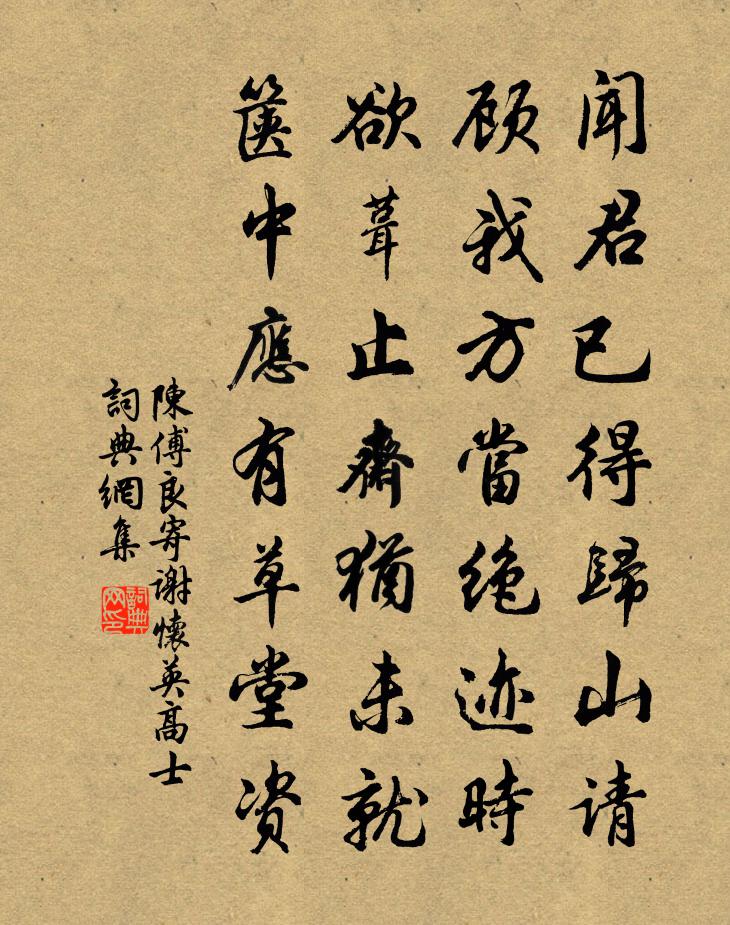 闻君已得歸山请
顾我方當绝迹時
欲葺止齋猶未就
箧中應有草堂资
陳傅良寄谢懷英高士
詞典網集
詞典网印